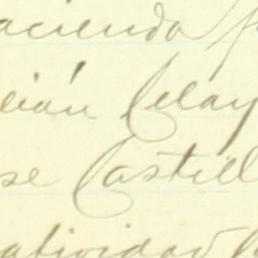 acienda
lián Celay
se Castill
atividad